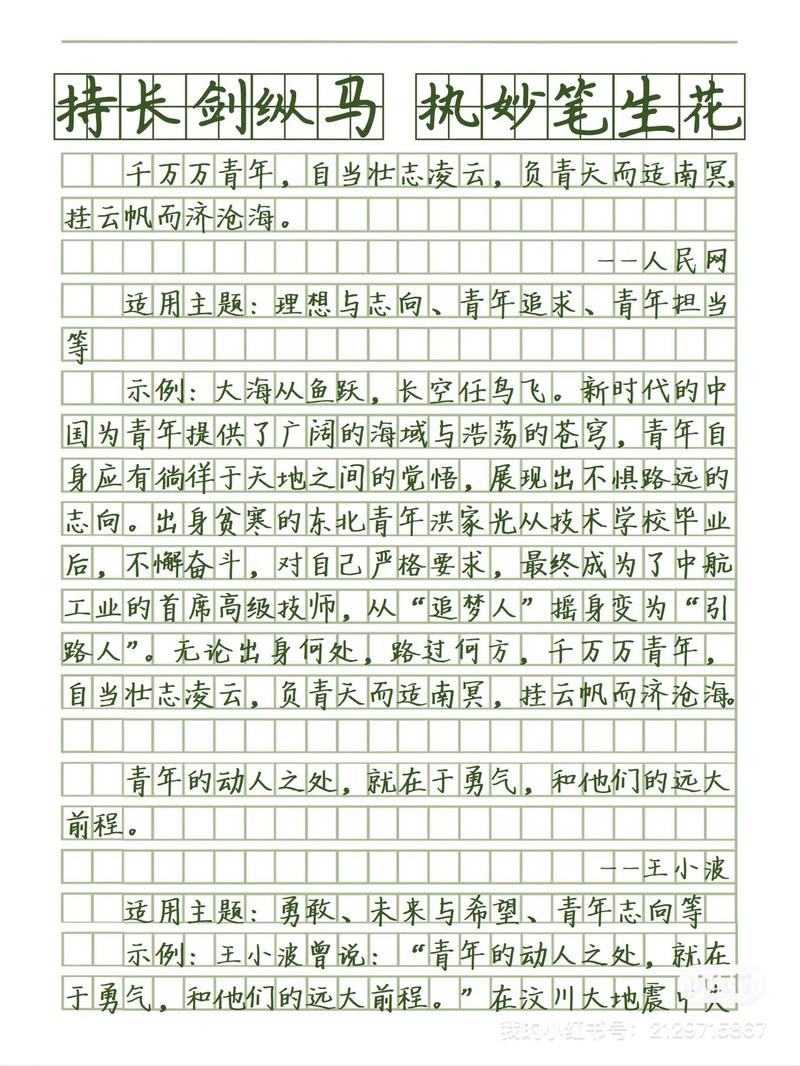 持长剑纵马 执妙笔生花
千万万青年，自当壮志凌云，负青天而适南冥，
挂云帆而济沧海。
——人民网
适用主题：理想与志向、青年追求、青年担当
等
示例：大海从鱼跃，长空任鸟飞。新时代的中
国为青年提供了广阔的海域与浩荡的苍穹，青年自
身应有徜徉于天地之间的觉悟，展现出不惧路远的
志向。出身贫寒的东北青年洪家光从技术学校毕业
后，不懈奋斗，对自己严格要求，最终成为了中航
工业的首席高级技师，从“追梦人”摇身变为“引
路人”。无论出身何处，路过何方，千万万青年，
自当壮志凌云，负青天而适南冥，挂云帆而济沧海。
青年的动人之处，就在于勇气，和他们的远大
前程。
——王小波
适用主题：勇敢、未来与希望、青年志向等
示例：王小波曾说：“青年的动人之处，就在
于勇气，和他们的远大前程。”在汶川大地震
我的小红书号：2129715867